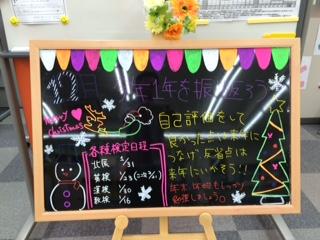 12月 今年1年を振り返ろう
Merry
Christmas
自己評価をして
良かった点は来年に
つなげ、反省点は
来年にいかそう!!
年末・休暇もしっかり
勉強しましょう
各種検定日程
北辰 1/31
英検 1/23(二次2/21)
漢検 1/30
数検 1/16